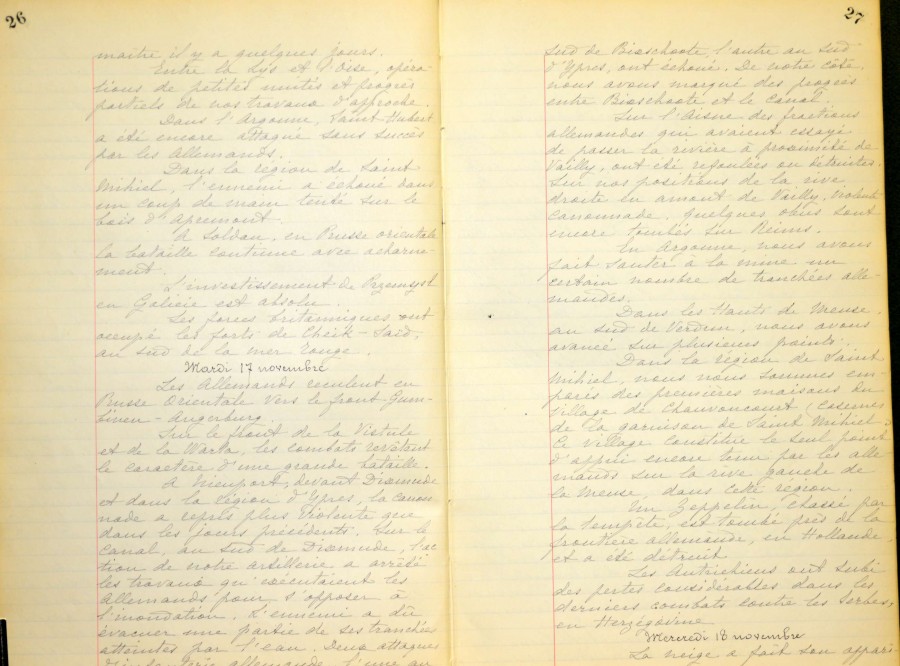 26
maitre il y a quelques jours.
Entre la Lys et l'Oise, opéra-
tions de petites unités et progrès
partiels de nos travaux d'approche.
Dans l'Argonne, Saint-Hubert
a été encore attaqué sans succès
par les Allemands.
Dans la région de Saint
Mihiel, l'ennemi a échoué dans
un coup de main tenté sur le
bois d'Apremont.
A Soldau, en Prusse orientale
la bataille continue avec acharne-
ment.
L'investissement de Przemysl
en Galicie est absolu.
Les forces britanniques ont
occupé les forts de Cheik-Saïd,
au sud de la mer rouge.
Mardi 17 novembre
Les Allemands reculent en
Prusse Orientale vers le front Gum-
binen-Angerburg
Sur le front de la Vistule
et de la Warta, les combats revêtent
le caractère d'une grande bataille.
A Nieuport, devant Dixmude
et dans la région d'Ypres, la canon-
nade a repris plus violente que
dans les jours précédents. Sur le
canal, au sud de Dixmude, l'ac
tion de notre artillerie a arrêté
les travaux qu'exécutaient les
Allemands pour s'opposer à
l'inondation. L'ennemi a dû
évacuer une partie de ses tranchées
atteintes par l'eau. Deux attaques
d'infanterie allemande, l'une au
27
sud de Bixschoote, l'autre au sud
d'Ypres, ont échoué. De notre côté,
nous avons marqué des progrès
entre Bixschoote et le canal.
Sur l'Aisne des fractions
allemandes qui avaient essayé
de passer la rivière à proximité de
Vailly, ont été refoulées ou détruites.
Sur nos positions de la rive
droite en amont de Vailly, violente
canonnade. Quelques obus sont
encore tombés sur Reims.
En Argonne, nous avons
fait sauter à la mine un
certain nombre de tranchées alle-
mandes.
Dans les Hauts de Meuse,
au sud de Verdun, nous avons
avancé sur plusieurs points.
Dans la région de Saint
Mihiel, nous nous sommes em-
parés des premières maisons du
village de Chauvoncourt (casernes
de la garnison de Saint Mihiel.
Ce village constitue le seul point
d'appui encore tenu par les alle
mands sur la rive gauche de
la Meuse, dans cette région.
Un Zeppelin, chassé par
la tempête, est tombé près de la
frontière allemande, en Hollande,
et a été détruit
Les Autrichiens ont subi
des pertes considérables dans les
derniers combats contre les Serbes,
en Herzégovine
Mercredi 18 novembre
La neige a fait son appari-